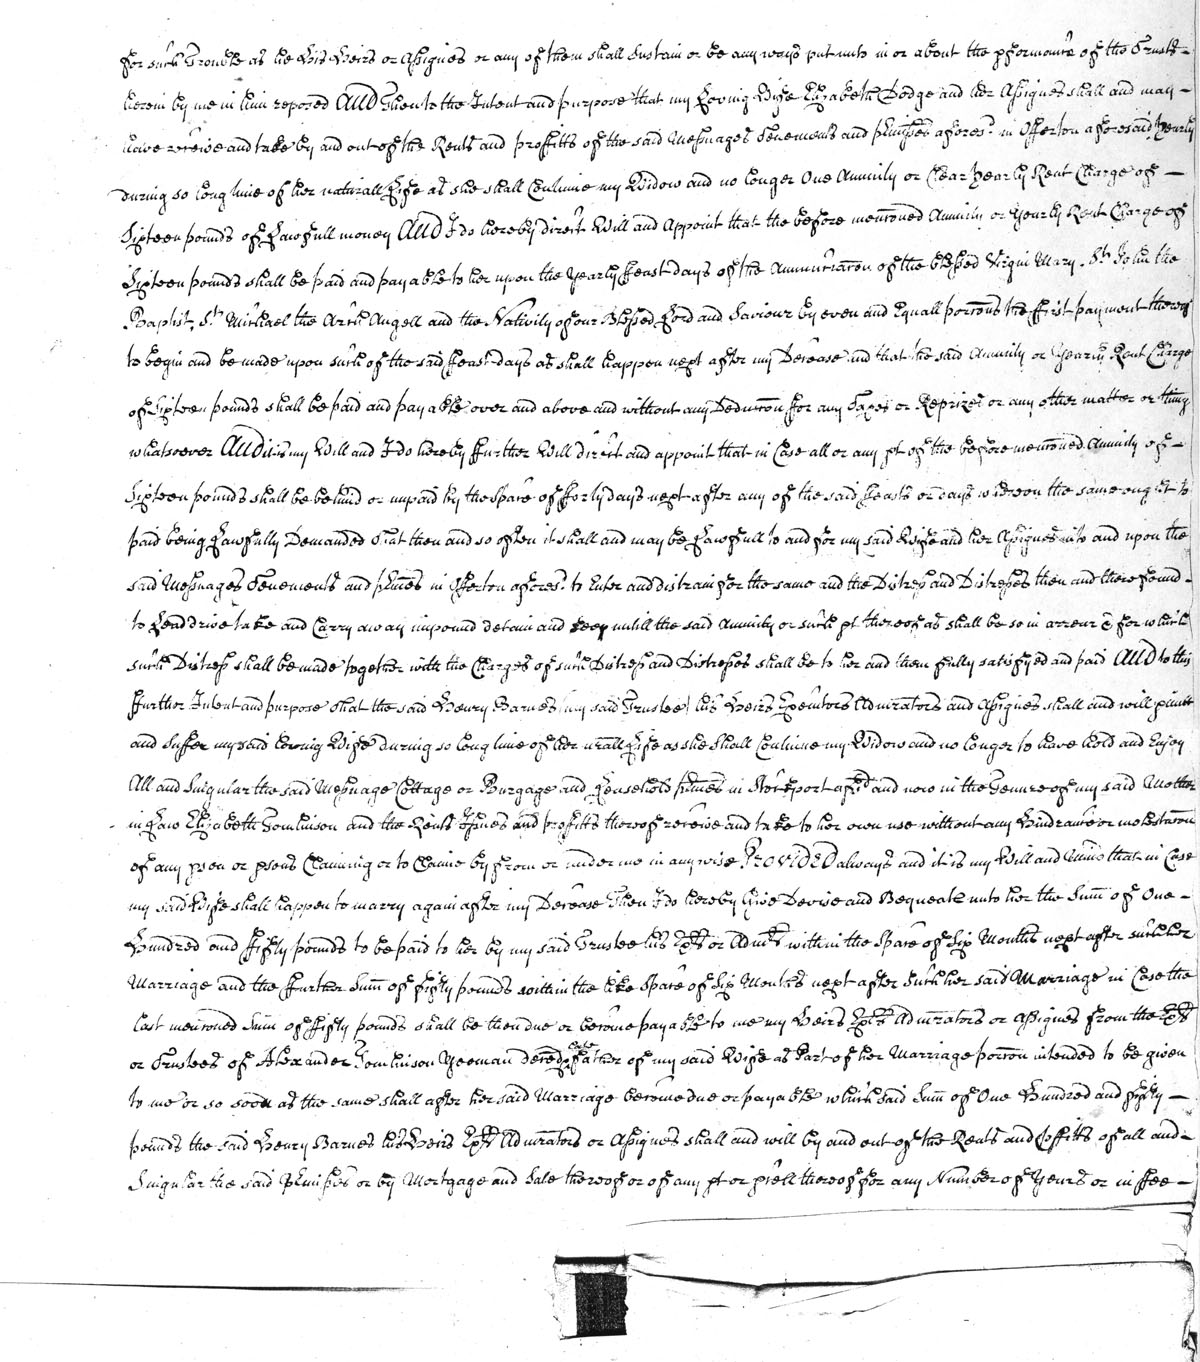 for such Trouble as he his Heirs or Assignes or any of them shall Sustain or be any ways put unto in or about the pformance of the Trusts
herein by me in him reposed AND Then to the Intent and purpose that my Loving Wife Elizabeth Dodge and her Assignes shall and may
have receive and take by and out of the Rents and proffitts of the said Messuages Tenements and pmisses afores.d in Offerton aforesaid Yearly
during so long time of her naturall Life as she shall Continue my Widow and no longer One Annuity or Clear Yearly Rent Charge of
Sixteen pounds of Lawfull money AND I do hereby direct Will and Appoint that the before menconed Annuity or Yearly Rent Charge of
Sixteen pounds shall be paid and payable to her upon the Yearly ffeast days of the Annunciacon of the blessed Virgin Mary. St. John the
Baptist, St. Michael the Arch Angell and the Nativity of our Blessed Lord and Saviour by even and Equall porcons the ffirst payment thereof
to begin and be made upon such of the said ffeast days as shall happen next after my Decease and that the said Annuity or Yearly Rent Charge
of Sixteen pounds shall be paid and payable over and above and without any Deduccon for any Taxes or Reprizes or any other matter or thing
whatsoever AND it is my Will and I do hereby ffurther Will direct and appoint that in Case all or any pt of the before menconed Annuity of
Sixteen pounds shall be behind or unpaid by the Space of fforty days next after any of the said ffeasts or days whereon the same ought to
paid being Lawfully Demanded That then and so often it shall and may be Lawfull to and for my said Wife and her Assignes into and upon the
said Messuages Tenements and pmisses in Offerton afores.d to Enter and distrain for the same and the Distress and Distresses then and there found
to Lead drive take and Carry away impound detain and keep untill the said Annuity or such pt thereof as shall be so in arrear & for which
such Distress shall be made together with the Charges of such Distress and Distresses shall be to her and them fully satisfyed and paid AND to this
ffurther Intent and purpose That the said Henry Barnes (my said Trustee) his Heirs Executors Admrators and Assignes shall and will pmitt
and Suffer my said loving Wife during so long time of her nrall Life as she Shall Continue my Widow and no longer to have hold and Enjoy
All and Singular the said Messuage Cottage or Burgage and Leasehold pmises in Stockport afsd and now in the Tenure of my said Mother
in Law Elizabeth Tomlinson and the Rents Issues and proffitts thereof receive and take to her own use without any Hindrance or molestacon
of any pson or psons Claiming or to Claime by from or under me in any wise PROVIDED always and it is my Will and Mind that in Case
my said Wife shall happen to marry again after my Decease Then I do hereby Give Devise and Bequeath unto her the Sum of One
Hundred and ffifty pounds to be paid to her by my said Trustee his Exrs or Admrs within the Space of Six Months next after such her
Marriage and the ffurther Sum of ffifty pounds within the like Space of Six Months next after Such her said Marriage in Case the
last menconed Sum of ffifty pounds shall be then due or become payable to me my Heirs Exrs Admrators or Assignes from the Exrs
or Trustees of Alexander Tomlinson Yeoman deced late ffather of my said Wife as Part of her Marriage porcon intended to be given
to me or so soon as the same shall after her said Marriage become due or payable which said Sum of One Hundred and ffifty
pounds the said Henry Barnes his Heirs Exrs Admrators or Assignes shall and will by and out of the Rents and pffitts of all and
Singular the said pmisses or by Mortgage and Sale thereof or of any pt or pcell thereof for any Number of Years or in ffee